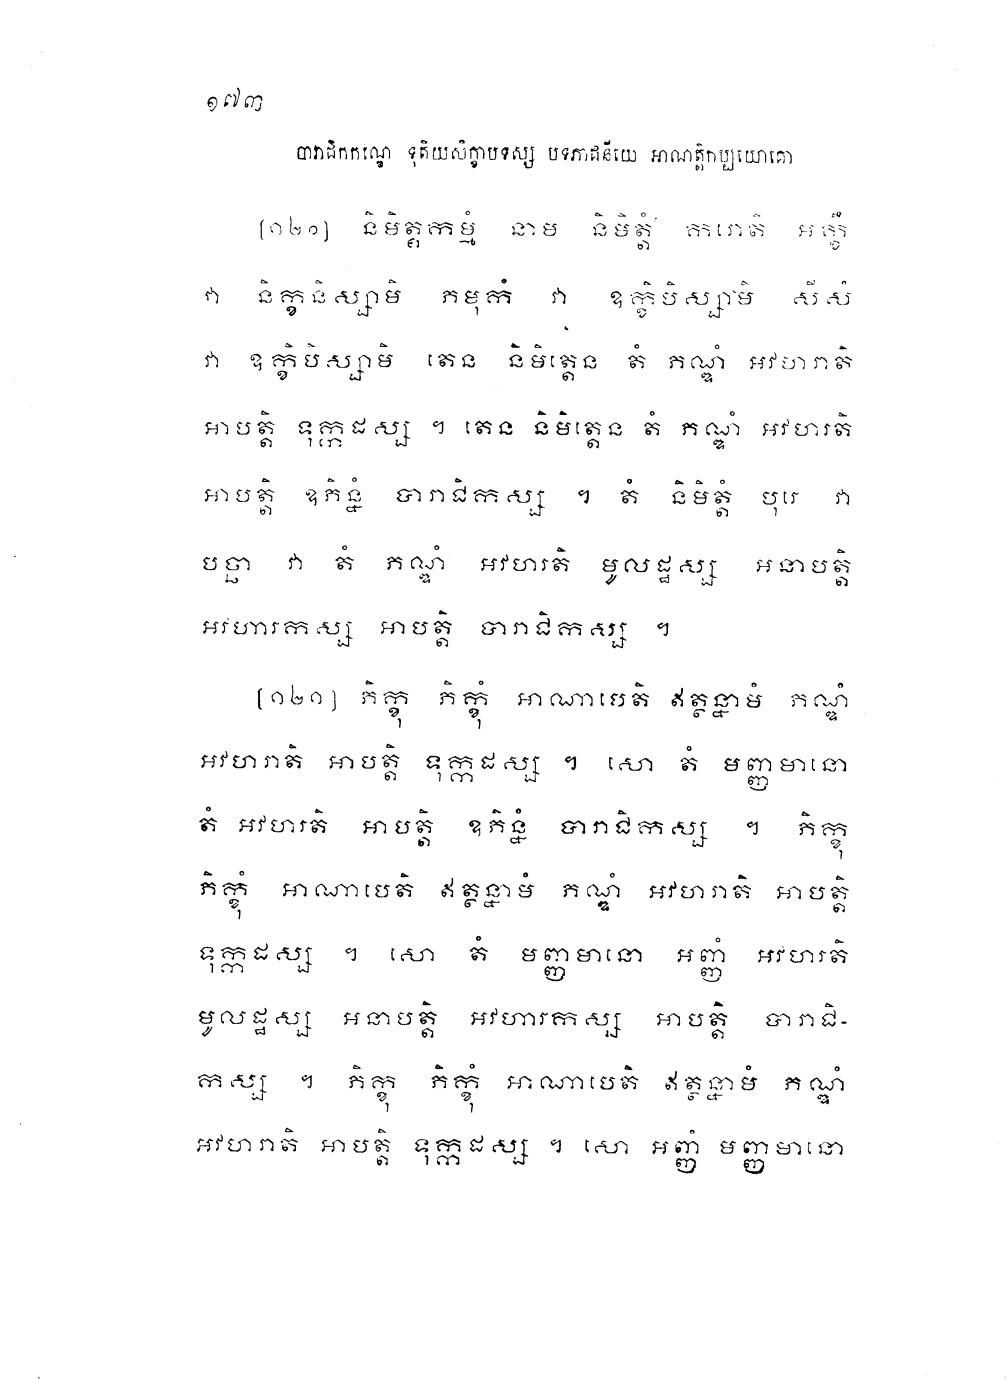 ១៧៣
បារាជិកកណ្ឌេ ទុតិយសិក្ខាបទស្ស បទភាជនីយេ អាណត្តិកប្បយោគោ
[១២០] និមិត្តកម្មំ នាម និមិត្តំ ករោតិ អក្ខឹ
វា និក្ខនិស្សាមិ ភមុកំ វា ឧក្ខិបិស្សាមិ សីសំ
វា ឧក្ខិបិស្សាមិ តេន និមិត្តេន តំ ភណ្ឌំ អវហរាតិ
អាបត្តិ ទុក្កដស្ស ។ តេន និមិត្តេន តំ ភណ្ឌំ អវហរតិ
អាបត្តិ ឧភិន្នំ បារាជិកស្ស ។ តំ និមិត្តំ បុរេ វា
បច្ឆា វា តំ ភណ្ឌំ អវហរតិ មូលដ្ឋស្ស អនាបត្តិ
អវហារកស្ស អាបត្តិ បារាជិកស្ស ។
[១២១] ភិក្ខុ ភិក្ខុំ អាណាបេតិ ឥត្ថន្នាមំ ភណ្ឌំ
អវហរាតិ អាបត្តិ ទុក្កដស្ស ។ សោ តំ មញ្ញមានោ
តំ អវហរតិ អាបត្តិ ឧភិន្នំ បារាជិកស្ស ។ ភិក្ខុ
ភិក្ខុំ អាណាបេតិ ឥត្ថន្នាមំ ភណ្ឌំ អវហរាតិ អាបត្តិ
ទុក្កដស្ស ។ សោ តំ មញ្ញមានោ អញ្ញំ អវហរតិ
មូលដ្ឋស្ស អនាបត្តិ អវហារកស្ស អាបត្តិ បារាជិ-
កស្ស ។ ភិក្ខុ ភិក្ខុំ អាណាបេតិ ឥត្ថន្នាមំ ភណ្ឌំ
អវហរាតិ អាបត្តិ ទុក្កដស្ស ។ សោ អញ្ញំ មញ្ញមានោ